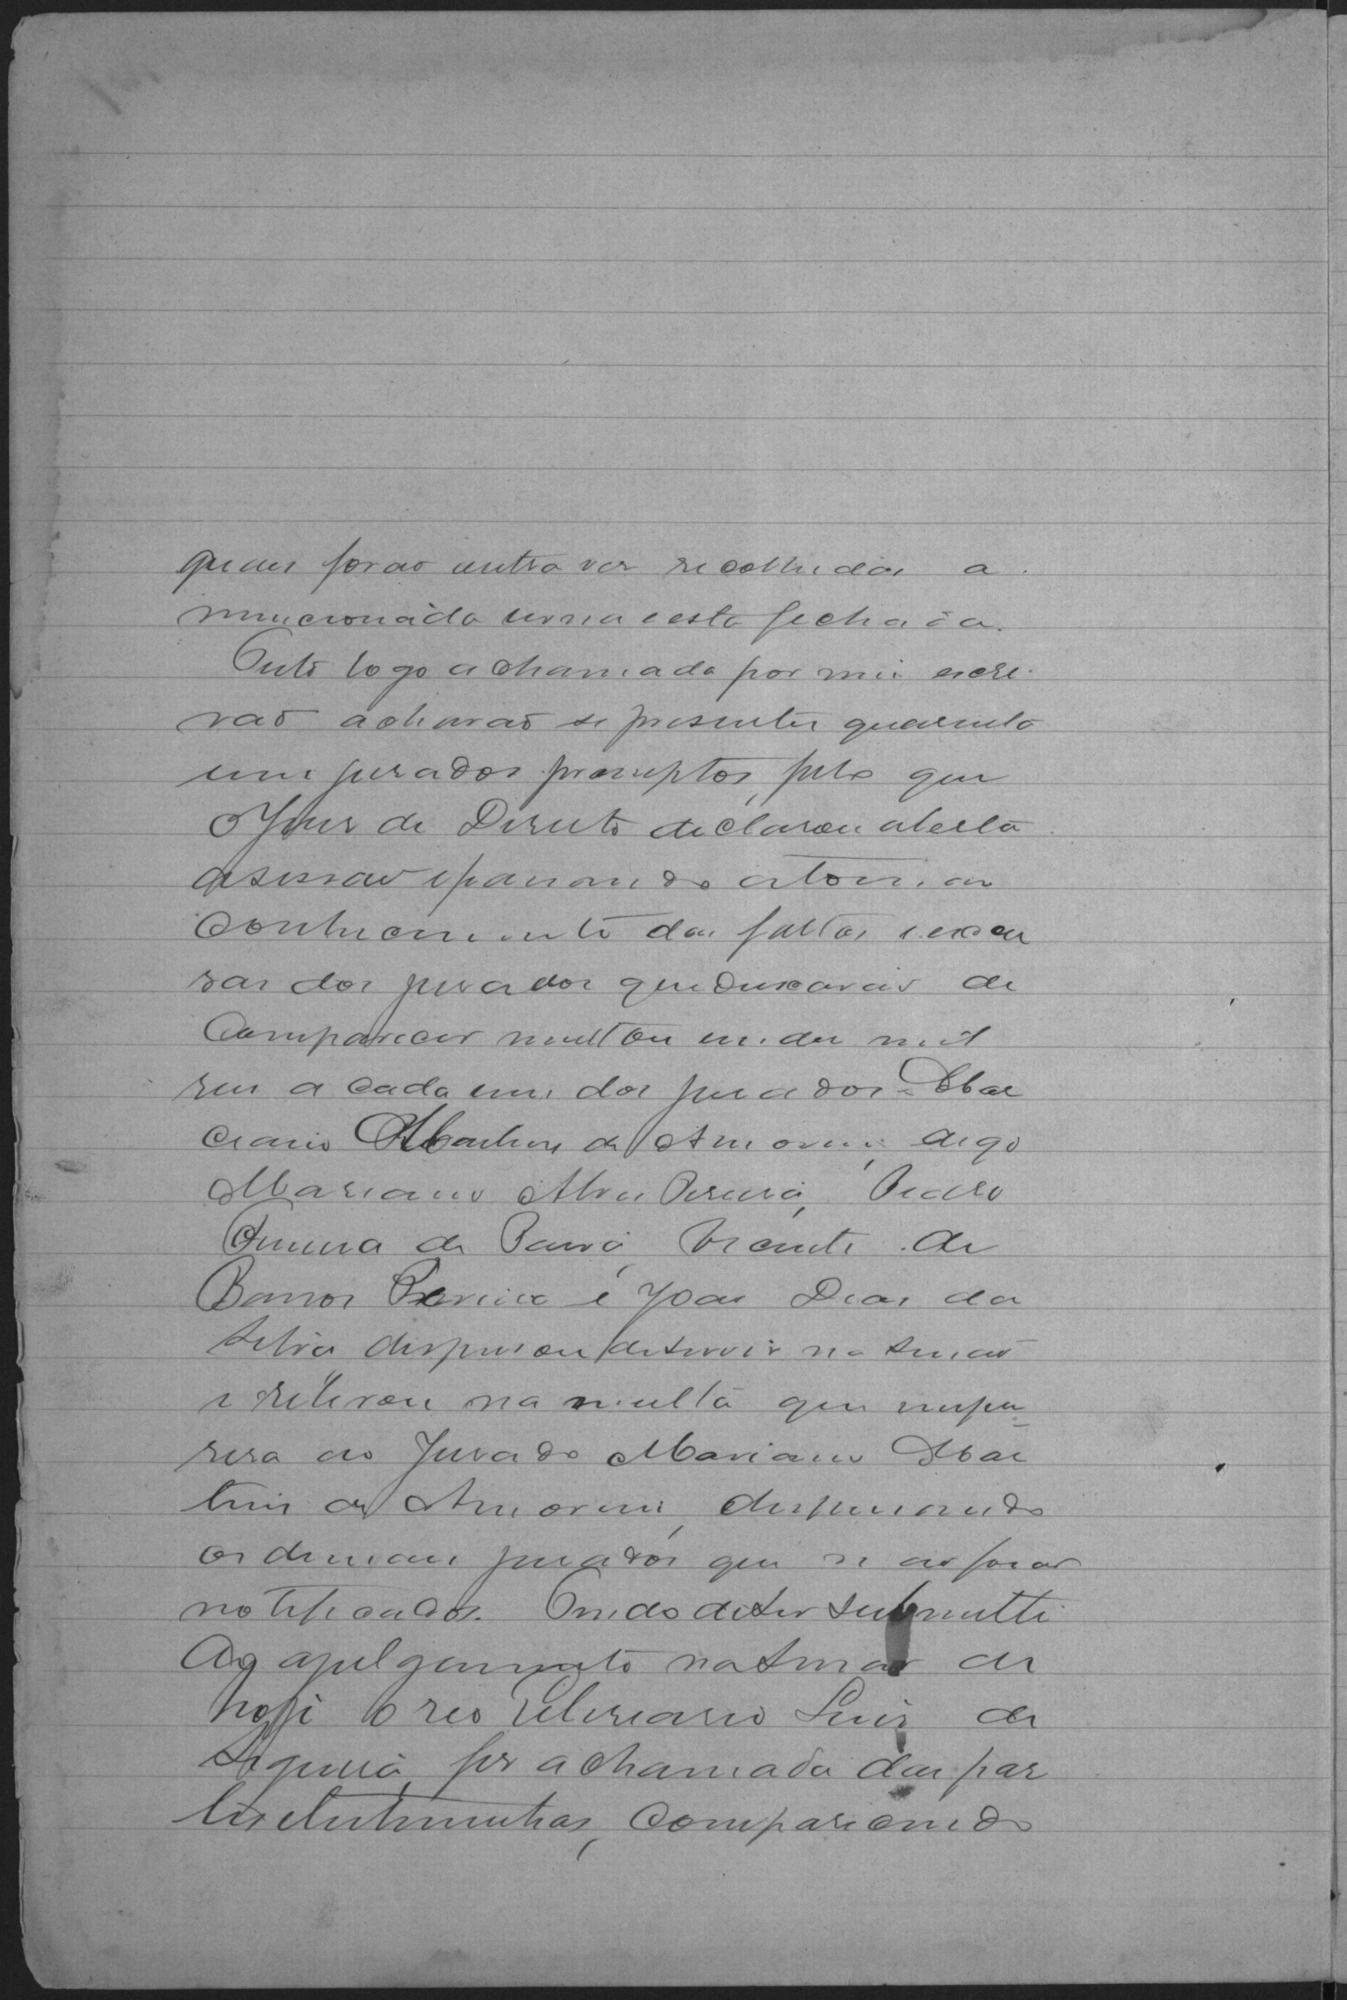 quaes forão outra vez recolhidas a
mencionada urna e esta fechada.
Feito logo a chamada por mim escri-
vão acharão se presentes quarenta
um jurados promptos, pelo que
o Juiz de Direito declarou aberta
a sessão e passando a tomar
conhecimento das faltas e escu
sas dos jurados que deixarão de
comparecer multou em dez mil
reis a cada um dos jurados Mar
ciano Martins de Amorim, digo
Mariano Alves Pereira, Pedro
de Paiva, Vicente de
Barros Pereira e João Dias da
Silva dispensou de servir na sessão
e relevou na multa que impu-
sera ao Jurado Mariano Mar
tins de Amorim, dispensando
os demais jurados que não forão
notificados. Tendo de ser submetti
do a julgamento na sessão de
hoje o reo Luis de
Siqueira, fez a chamada das par
tes e testemunhas, comparecendo